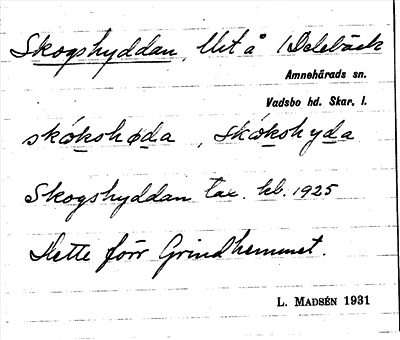 Skogshyddan, Utå /Delebäck
Amnehärads sn.
Vadsbo hd. Skar. l.
skókshøda, skókshyda
Skogshyddan tax. kb. 1925
Hette förr Grindhemmet.
L. MADSÉN 1931